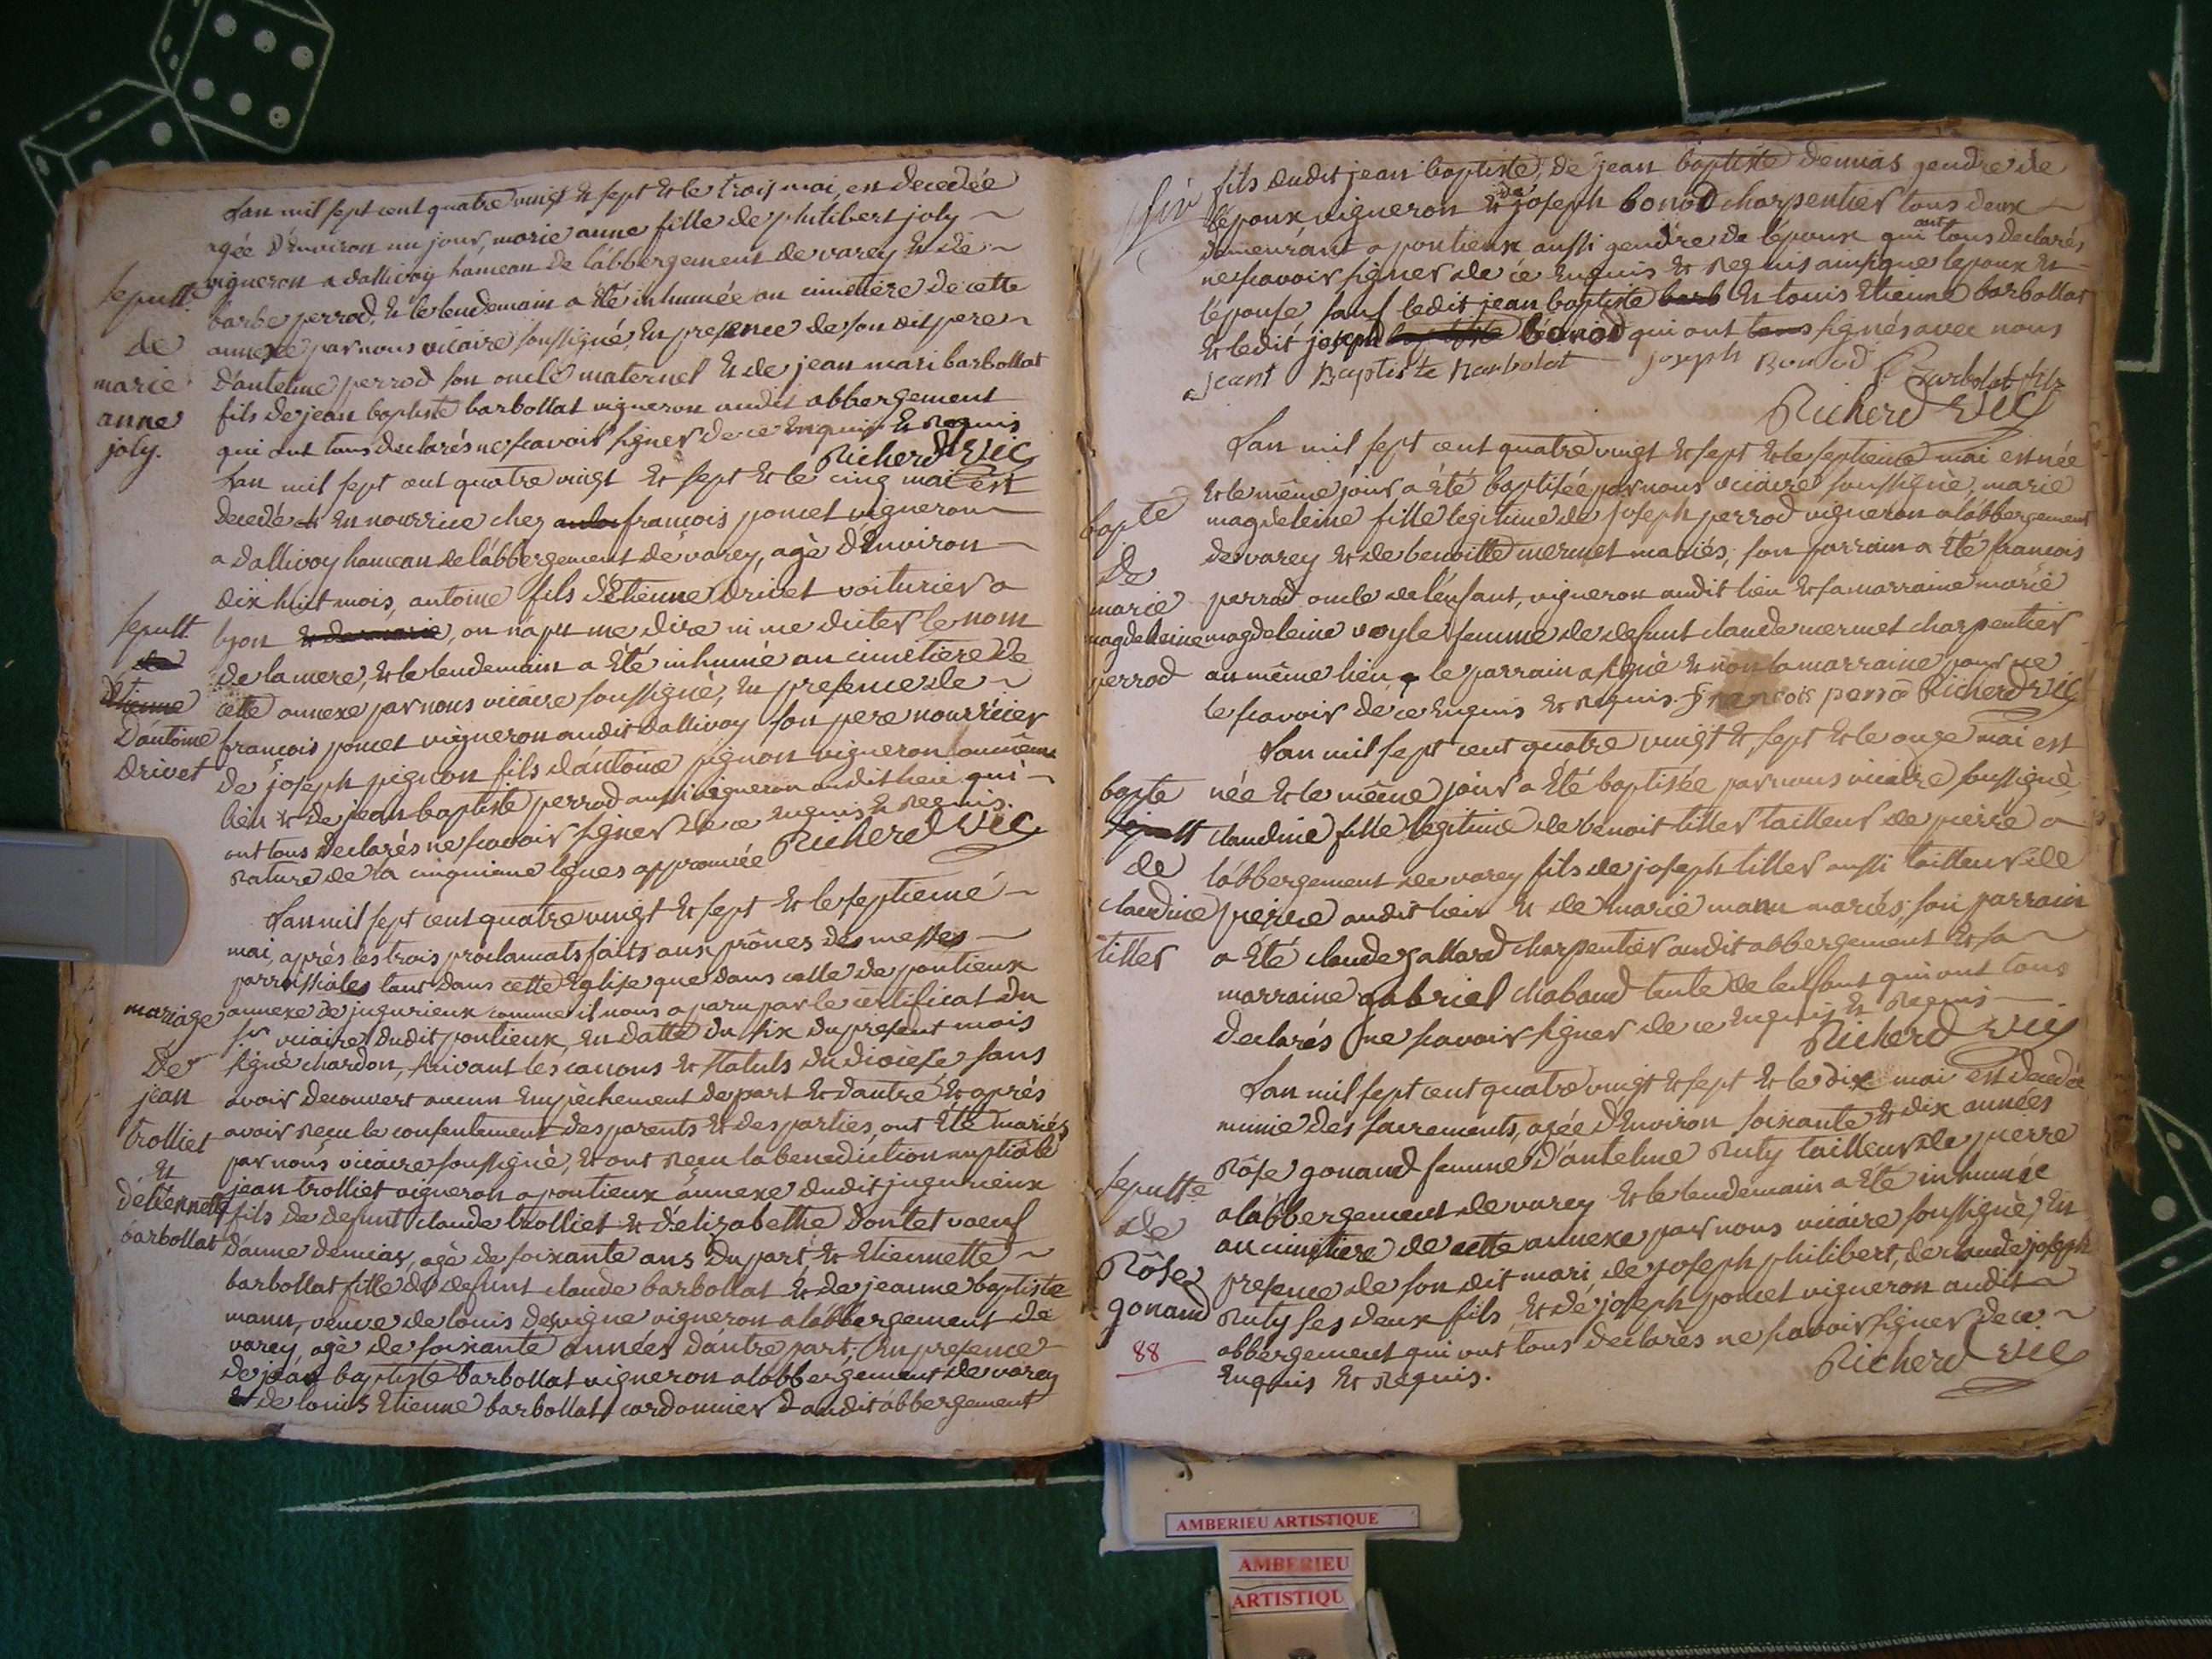 Lan mil sept cent quatre vingt et sept et le trois mai, est decedée
agée d'Environ un jour, marie anne fille de philibert joly
vigneron a dallivoy hameau de l'abbergement de varey et de
barbe perrod, et le lendemain a été inhumée au cimetière de cette
annexe par nous vicaire soussigné, En presence de son dit pere
d'antelme perrod son oncle maternel et de jean mari barbollat
fils de jean baptiste barbollat vigneron audit abbergement
qui ont tous declarés ne scavoir signer de ce Enquis et Requis
Richerd Vic
sepult.
de
marie
anne
joly.
Lan mil sept cent quatre vingt et sept et le cinq mai est
decedé en nourrice chez francois poncet vigneron
a dallivoy hameau de l'abbergement de varey, agè d'Environ
dix huit mois, antoine fils d'Etienne drivet voiturier a
lyon et de marie, on n'a pu me dire ni me dicter le nom
de la mere, et le lendemain a été inhumé au cimetiere de
cette annexe par nous vicaire soussignè, En presence de
francois poncet vigneron audit dallivoy son pere nourricier
de joseph pignon fils d'antoine pignon vigneron au même
lieu et de jean baptiste perrod aussi vigneron audit lieu qui
ont tous declarés ne scavoir signer de ce Enquis et Requis.
Rature de la cinquieme lignes approuvée Richerd Vic
sepult
de
Etienne
D'antoine
drivet
Lan mil sept cent quatre vingt et sept et le septieme
mai, après les trois proclamats faits aux prônes des messes
parroissiales tant dans cette Eglise que dans celle de pontieux
annexe de jugurieux comme il nous a paru par le certificat du
sr vicaire dudit pontieux, En datte du six du present mois
signé chardon, suivant les canons et statuts du diocèse sans
avoir decouvert aucun Empêchement de part et d'autre et après
avoir Recu le consentement des parents et des parties, ont été mariés
par nous vicaire soussigné, et ont Recu la benediction nuptiale
jean trolliet vigneron a pontieux annexe dudit jugurieux
fils de defunt claude trolliet et d'elizabethe doutet voeuf
d'anne demias, agè de soixante ans du part, et Etiennette
barbollat fille de defunt claude barbollat et de jeanne baptiste
mann, veuve de louis devigne vigneron a l'abbergement de
varey agè de soixante années d'autre part; En presence
de jean baptiste barbollat vigneron a l'abbergement de varey
et de louis Etienne barbollat cordonnier audit abbergement
mariage
De
jean
trolliet
et
d'étiennette
barbollat
fils dudit jean baptiste, de jean baptiste demias gendre de
lepoux, vigneron et de joseph bonod charpentier tous deux
demeurant a pontieux aussi gendre de lepoux qui ont tous declarés
ne scavoir signer de ce Enquis et Requis ainsi que lepoux et
l'épouse sauf ledit jean baptiste barb et louis Etienne barbollat
et ledit joseph baptiste bonod qui ont tous signés avec nous
jeant Baptiste Barbolat joseph Bonod Barbolat fils
Richerd Vic
Lan mil sept cent quatre vingt et sept et le septieme mai est née
et le même jour a été baptisée par nous vicaire soussignè, marie
magdeleine fille legitime de joseph perrod vigneron a l'abbergement
de varey et de benoitte mermet mariés, son parrain a été francois
perrod oncle de l'enfant, vigneron audit lieu et sa marraine marie
magdeleine voyle femme de defunt claude mermet charpentier
au même lieu le parrain a signè et non la marraine pour ne
le scavoir de ce Enquis et Requis. francois perrō Richerd Vic
bapte
De
marie
magdeleine
perrod
Lan mil sept cent quatre vingt et sept et le onze mai est
née et le même jour a été baptisée par nous vicaire soussignè,
claudine fille legitime de benoit tiller tailleur de pierre a
l'abbergement de varey fils de joseph tiller aussi tailleur de
pierre audit lieu et de marie mann mariés, son parrain
a été claude gallard charpentier audit abbergement et sa
marraine gabriel chabaud tente de lenfant qui ont tous
declarés ne scavoir signer de ce Enquis et Requis
Richerd Vic
bapte
sepult
de
claudine
tiller
Lan mil sept cent quatre vingt et sept et le dix mai est decedée
munie des sacrements, agée d'Environ soixante et dix années
Rôse gonand femme d'antelme Ruty tailleur de pierre
a l'abbergement de varey et le lendemain a été inhumée
au cimetiere de cette annexe par nous vicaire soussignè, En
presence de son dit mari, de joseph philibert, de claude joseph
Ruty ses deux fils, et de joseph poncet vigneron audit
abbergement qui ont tous declarès ne scavoir signer de ce
Enquis et Requis.
Richerd Vic
sepultre
de
Rôse
gonand
88
AMBERIEU ARTISTIQUE
AMBERIEU
ARTISTIQU